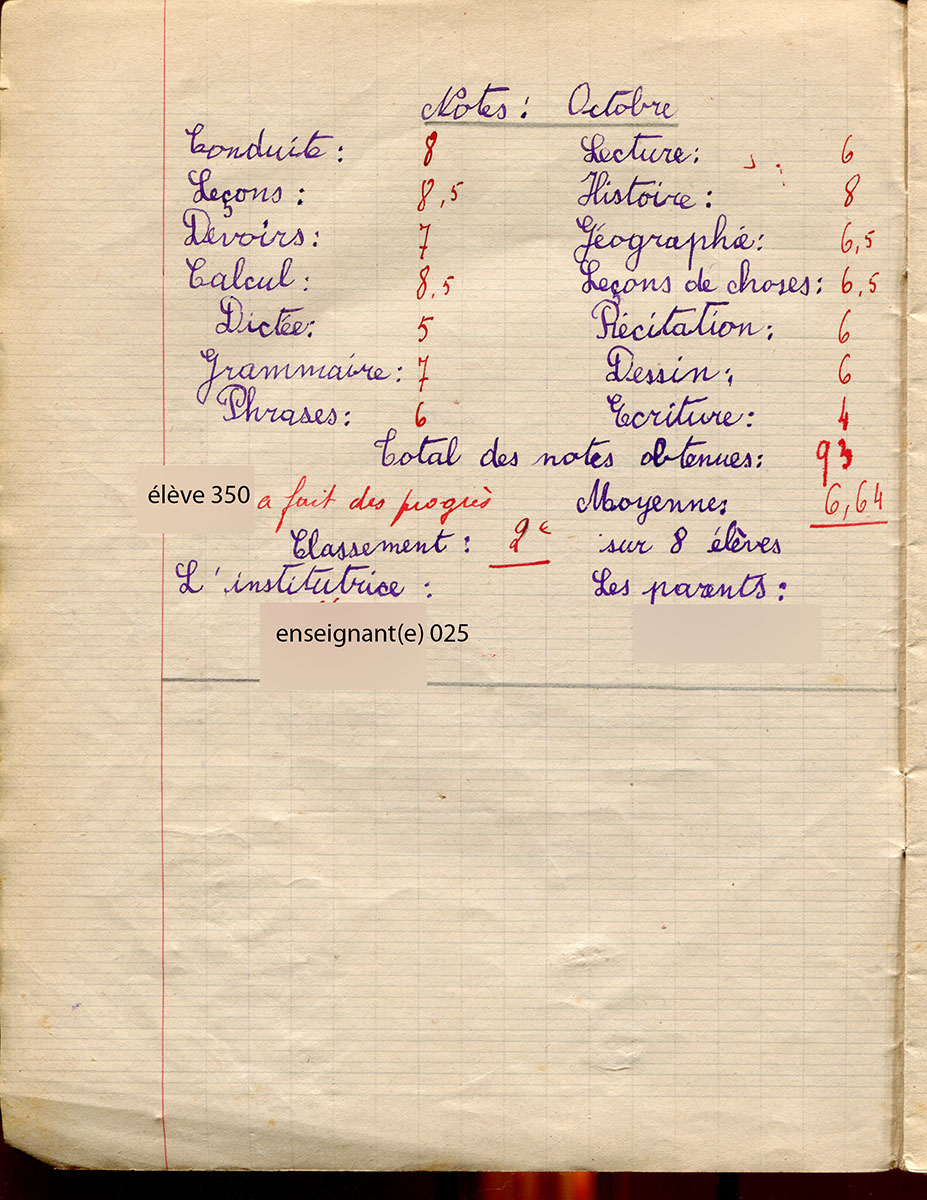 Notes : Octobre
Conduite : 8 Lecture : 6
Leçons : 8,5 Histoire : 8
Devoirs : 7 Géographie : 6,5
Calcul : 8,5 Leçons de choses : 6,5
Dictée : 5 Récitation : 6
Grammaire : 7 Dessin : 6
Phrases : 6 Ecriture : 4
Total des notes obtenues : 93
élève 350 a fait des progrès Moyenne : 6,64
Classement : 2e sur 8 élèves
L'institutrice : Les parents :
enseignant(e) 025